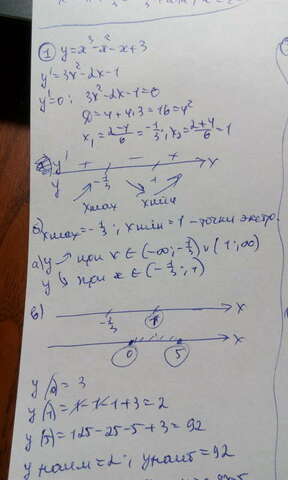 ① y=x³-x²-x+3
y'=3x²-2x-1
y'=0; 3x²-2x-1=0
D=4+4·3=16=4²
x₁=(2-4)/6=-1/3; x₂=(2+4)/6=1
y' + - + x
y -1/3 1
xmax xmin
б) xmax=-1/3; xmin=1 - точки экстр.
а) y ↗ при x∈(-∞;-1/3)∪(1;∞)
y ↘ при x∈(-1/3;1)
в) -1/3 1 x
0 5 x
y(0)=3
y(1)=1-1-1+3=2
y(5)=125-25-5+3=92
y наим=2; y наиб=92